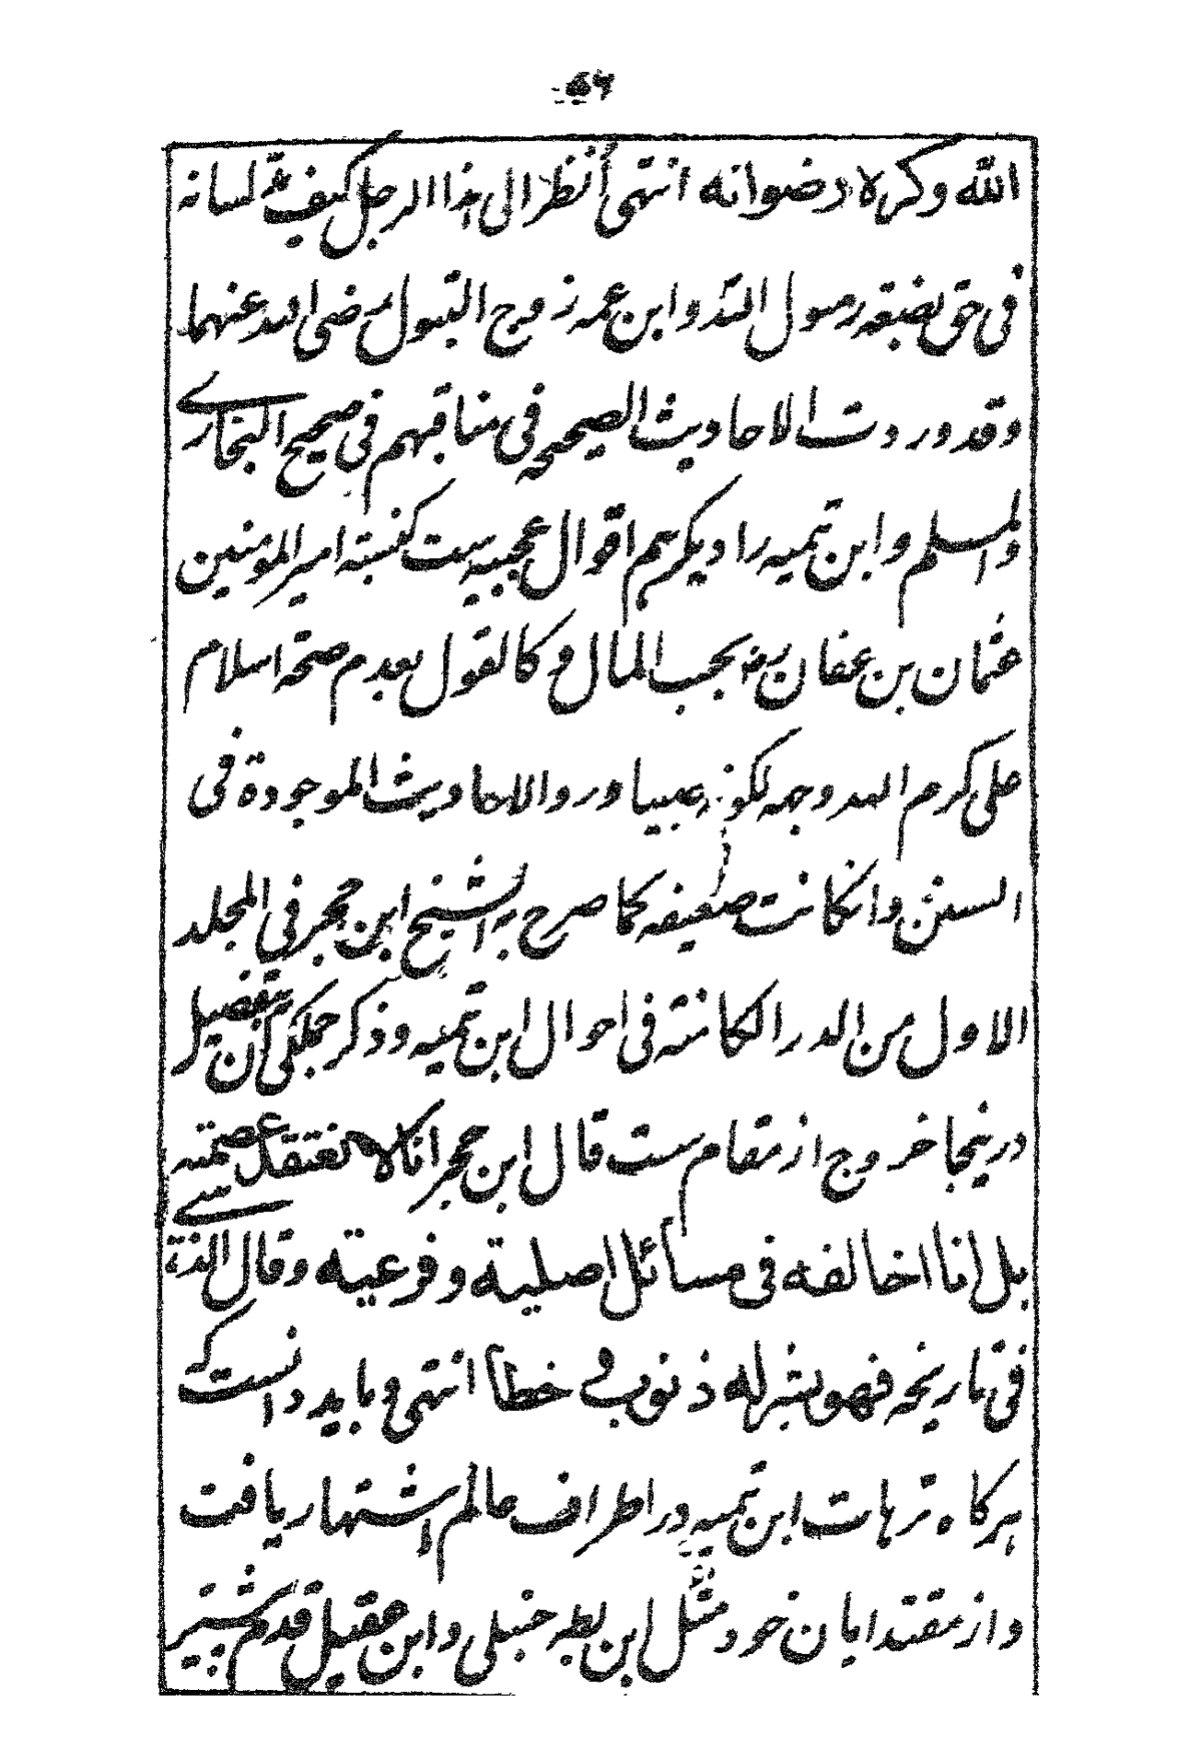 الله وكره رضوانه انتهى أنظر الى هذا الرجل كيف لسانه
فى حق بضعة رسول الله وابن عمه زوج البتول رضى الله عنهما
وقد وردت الاحاديث الصحيحه فى مناقبهم فى صحيح البخارى
والمسلم وابن تميه را ديگر هم اقوال عجيبه ست كنسبته امير المومنين
عثمان بن عفان رضه بحب المال و كالقول بعدم صحة اسلام
على كرم الله وجهه لكونه صبيا ورد الاحاديث الموجودة فى
السنن وان كانت ضعيفه كما صرح به الشيخ ابن حجر فى المجلد
الاول من الدر الكامنته فى احوال ابن تميه وذكر جملگى آن بتفصيل
درينجا خروج از مقام ست قال ابن حجر انا لا نعتقد عصمته
بل انا اخالفه فى مسائل اصلية وفرعيته وقال الذهبى
فى تاريخه فهو بشر له ذنوب و خطأ انتهى و بايد دانست كه
هرگاه ترهات ابن تميه در اطراف عالم اشتهار يافت
و از مقتدايان خود مثل ابن بطه حنبلى و ابن عقيل قدم پيشتر